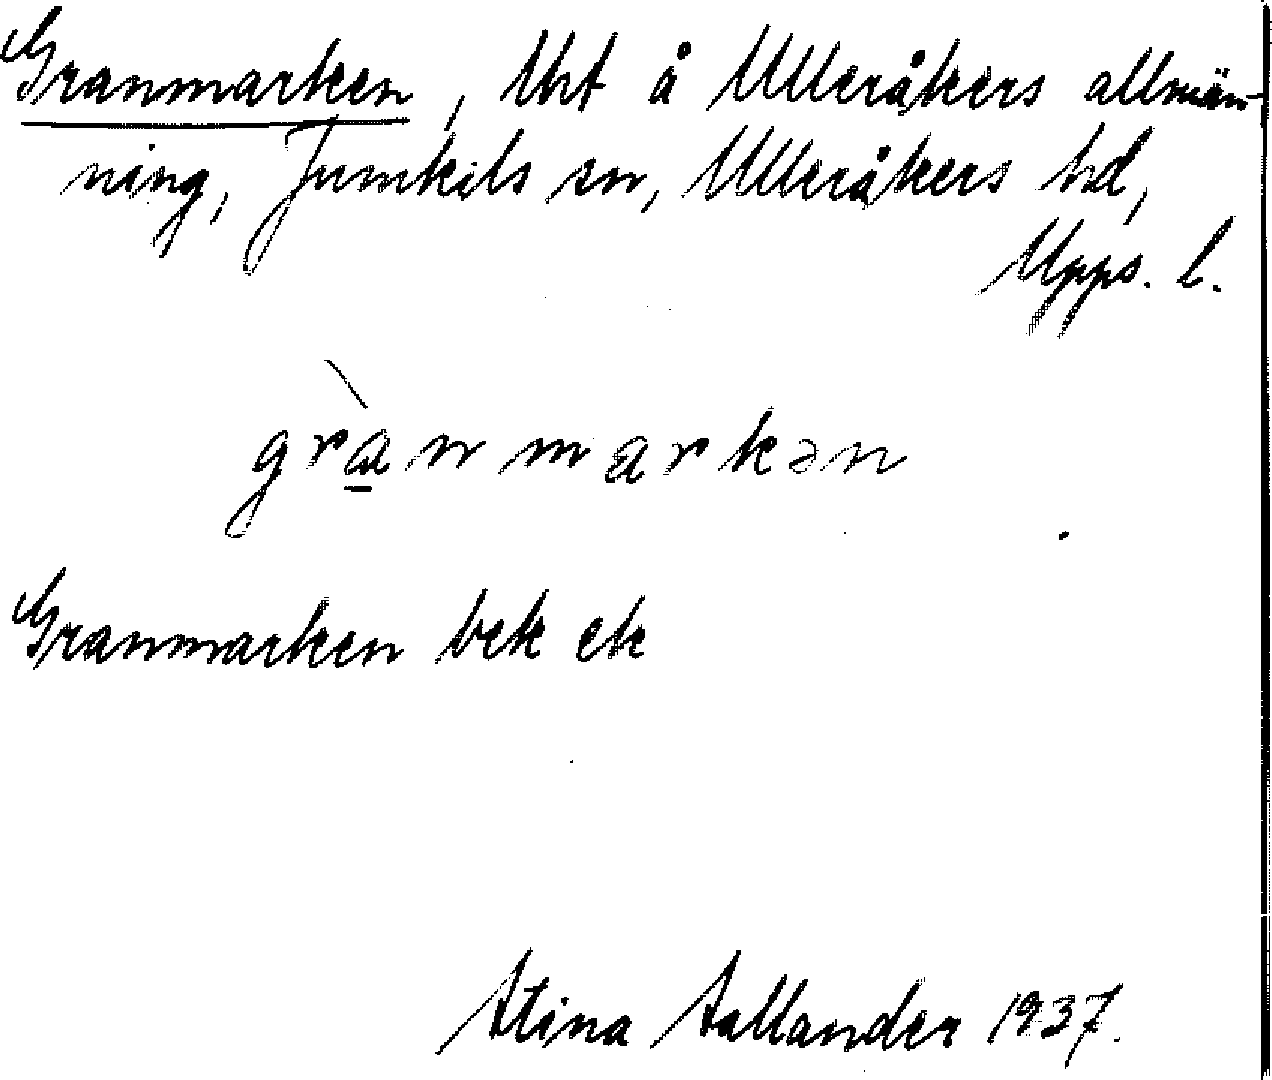 Granmarken, Urt å Ulleråkers allmän-
ning, Jumkils sn, Ulleråkers hd,
Upps. l.
grànmarkən
Granmarken bek ek
Stina Sallander 1937.